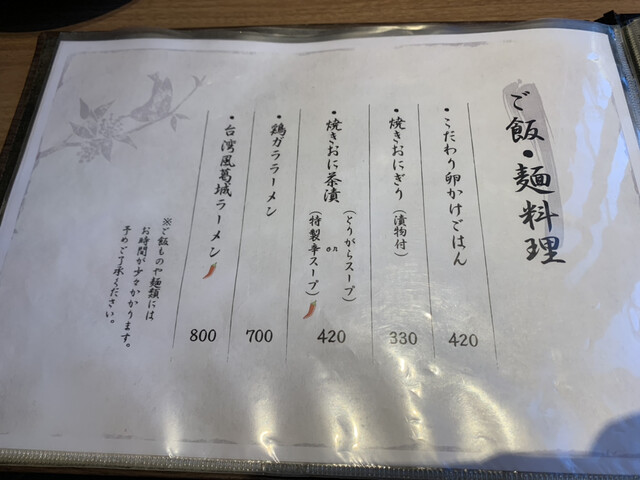 ご飯・麺料理
・こだわり卵かけごはん 420
・焼きおにぎり(漬物付) 330
・焼きおに茶漬(とりがらスープ)or(特製辛スープ) 420
・鶏ガララーメン 700
・台湾風葛城ラーメン 800
※ご飯ものや麺類には
お時間が少々かかります。
予めご了承ください。